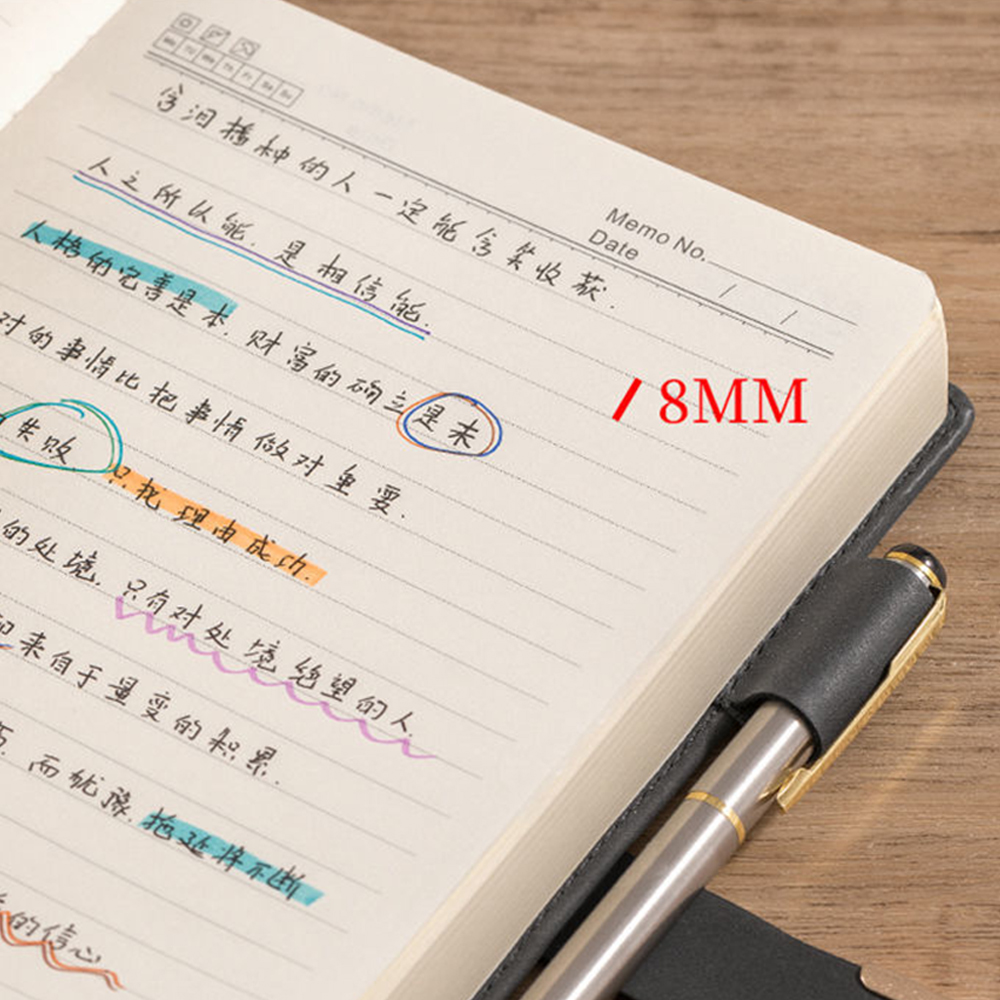 Memo No.
Date / /
含泪播种的人一定能含笑收获.
人之所以能.是相信能.
人格的完善是本.财富的确立是末
对的事情比把事情做对重要.
失败 只找理由成功.
的处境.只有对处境绝望的人.
来自于量变的积累.
而犹豫.拖延将不断
的信心
8MM